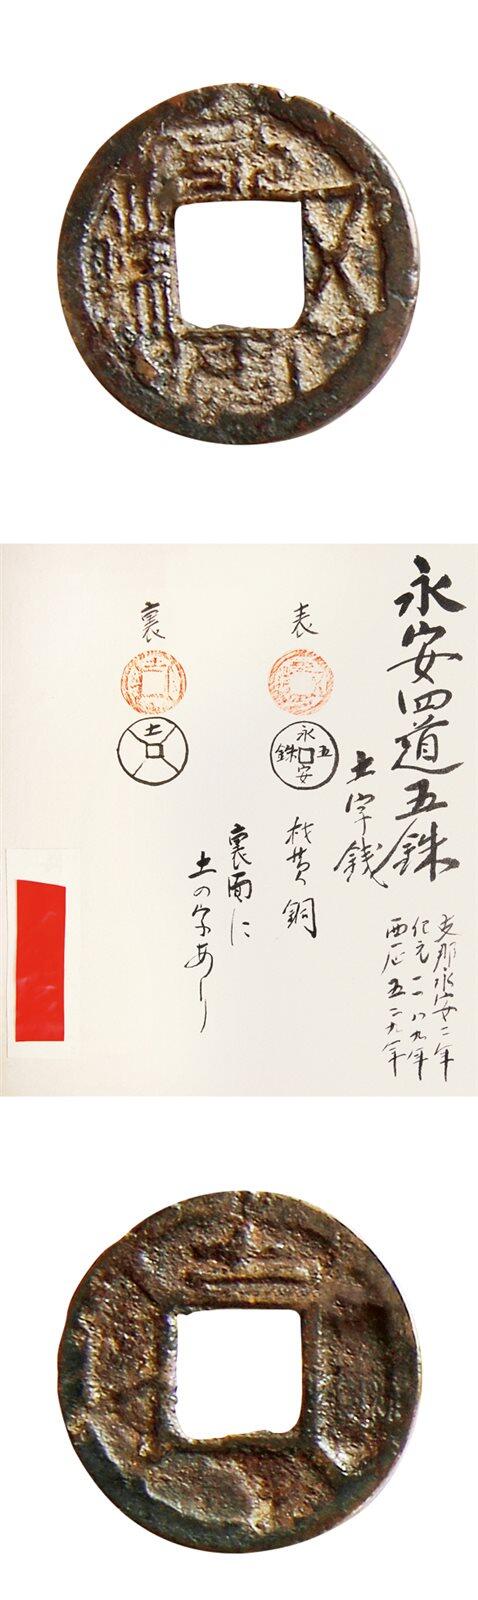 永安五銖
永安四道五銖
土字銭
支那永安二年
紀元一一八九年
西历五二九年
表
永安五銖
材黄銅
裏
土
裏面に
土の字あり
土